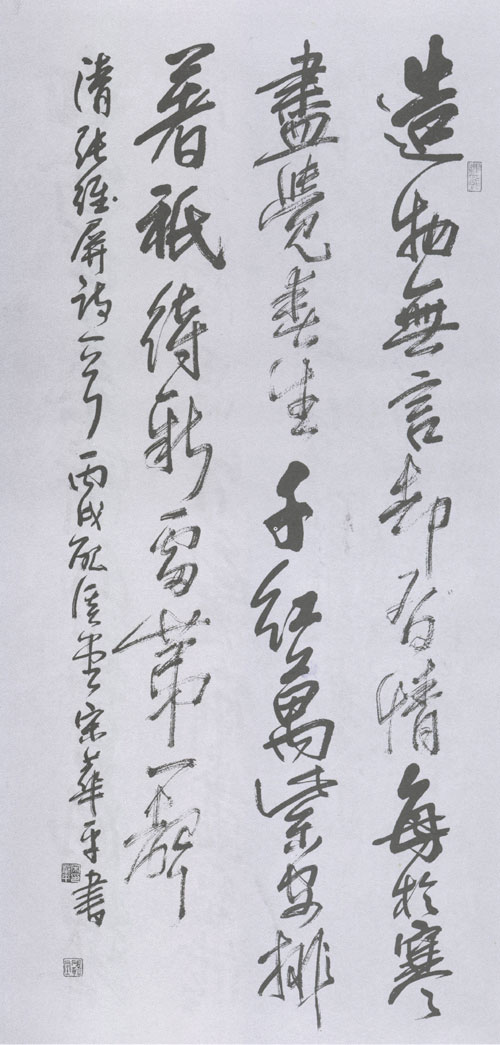 造物無言却有情每於寒
盡覺春生千紅萬紫安排
著祇待新雷第一聲
清張維屏詩一首 丙戌 宋華平書